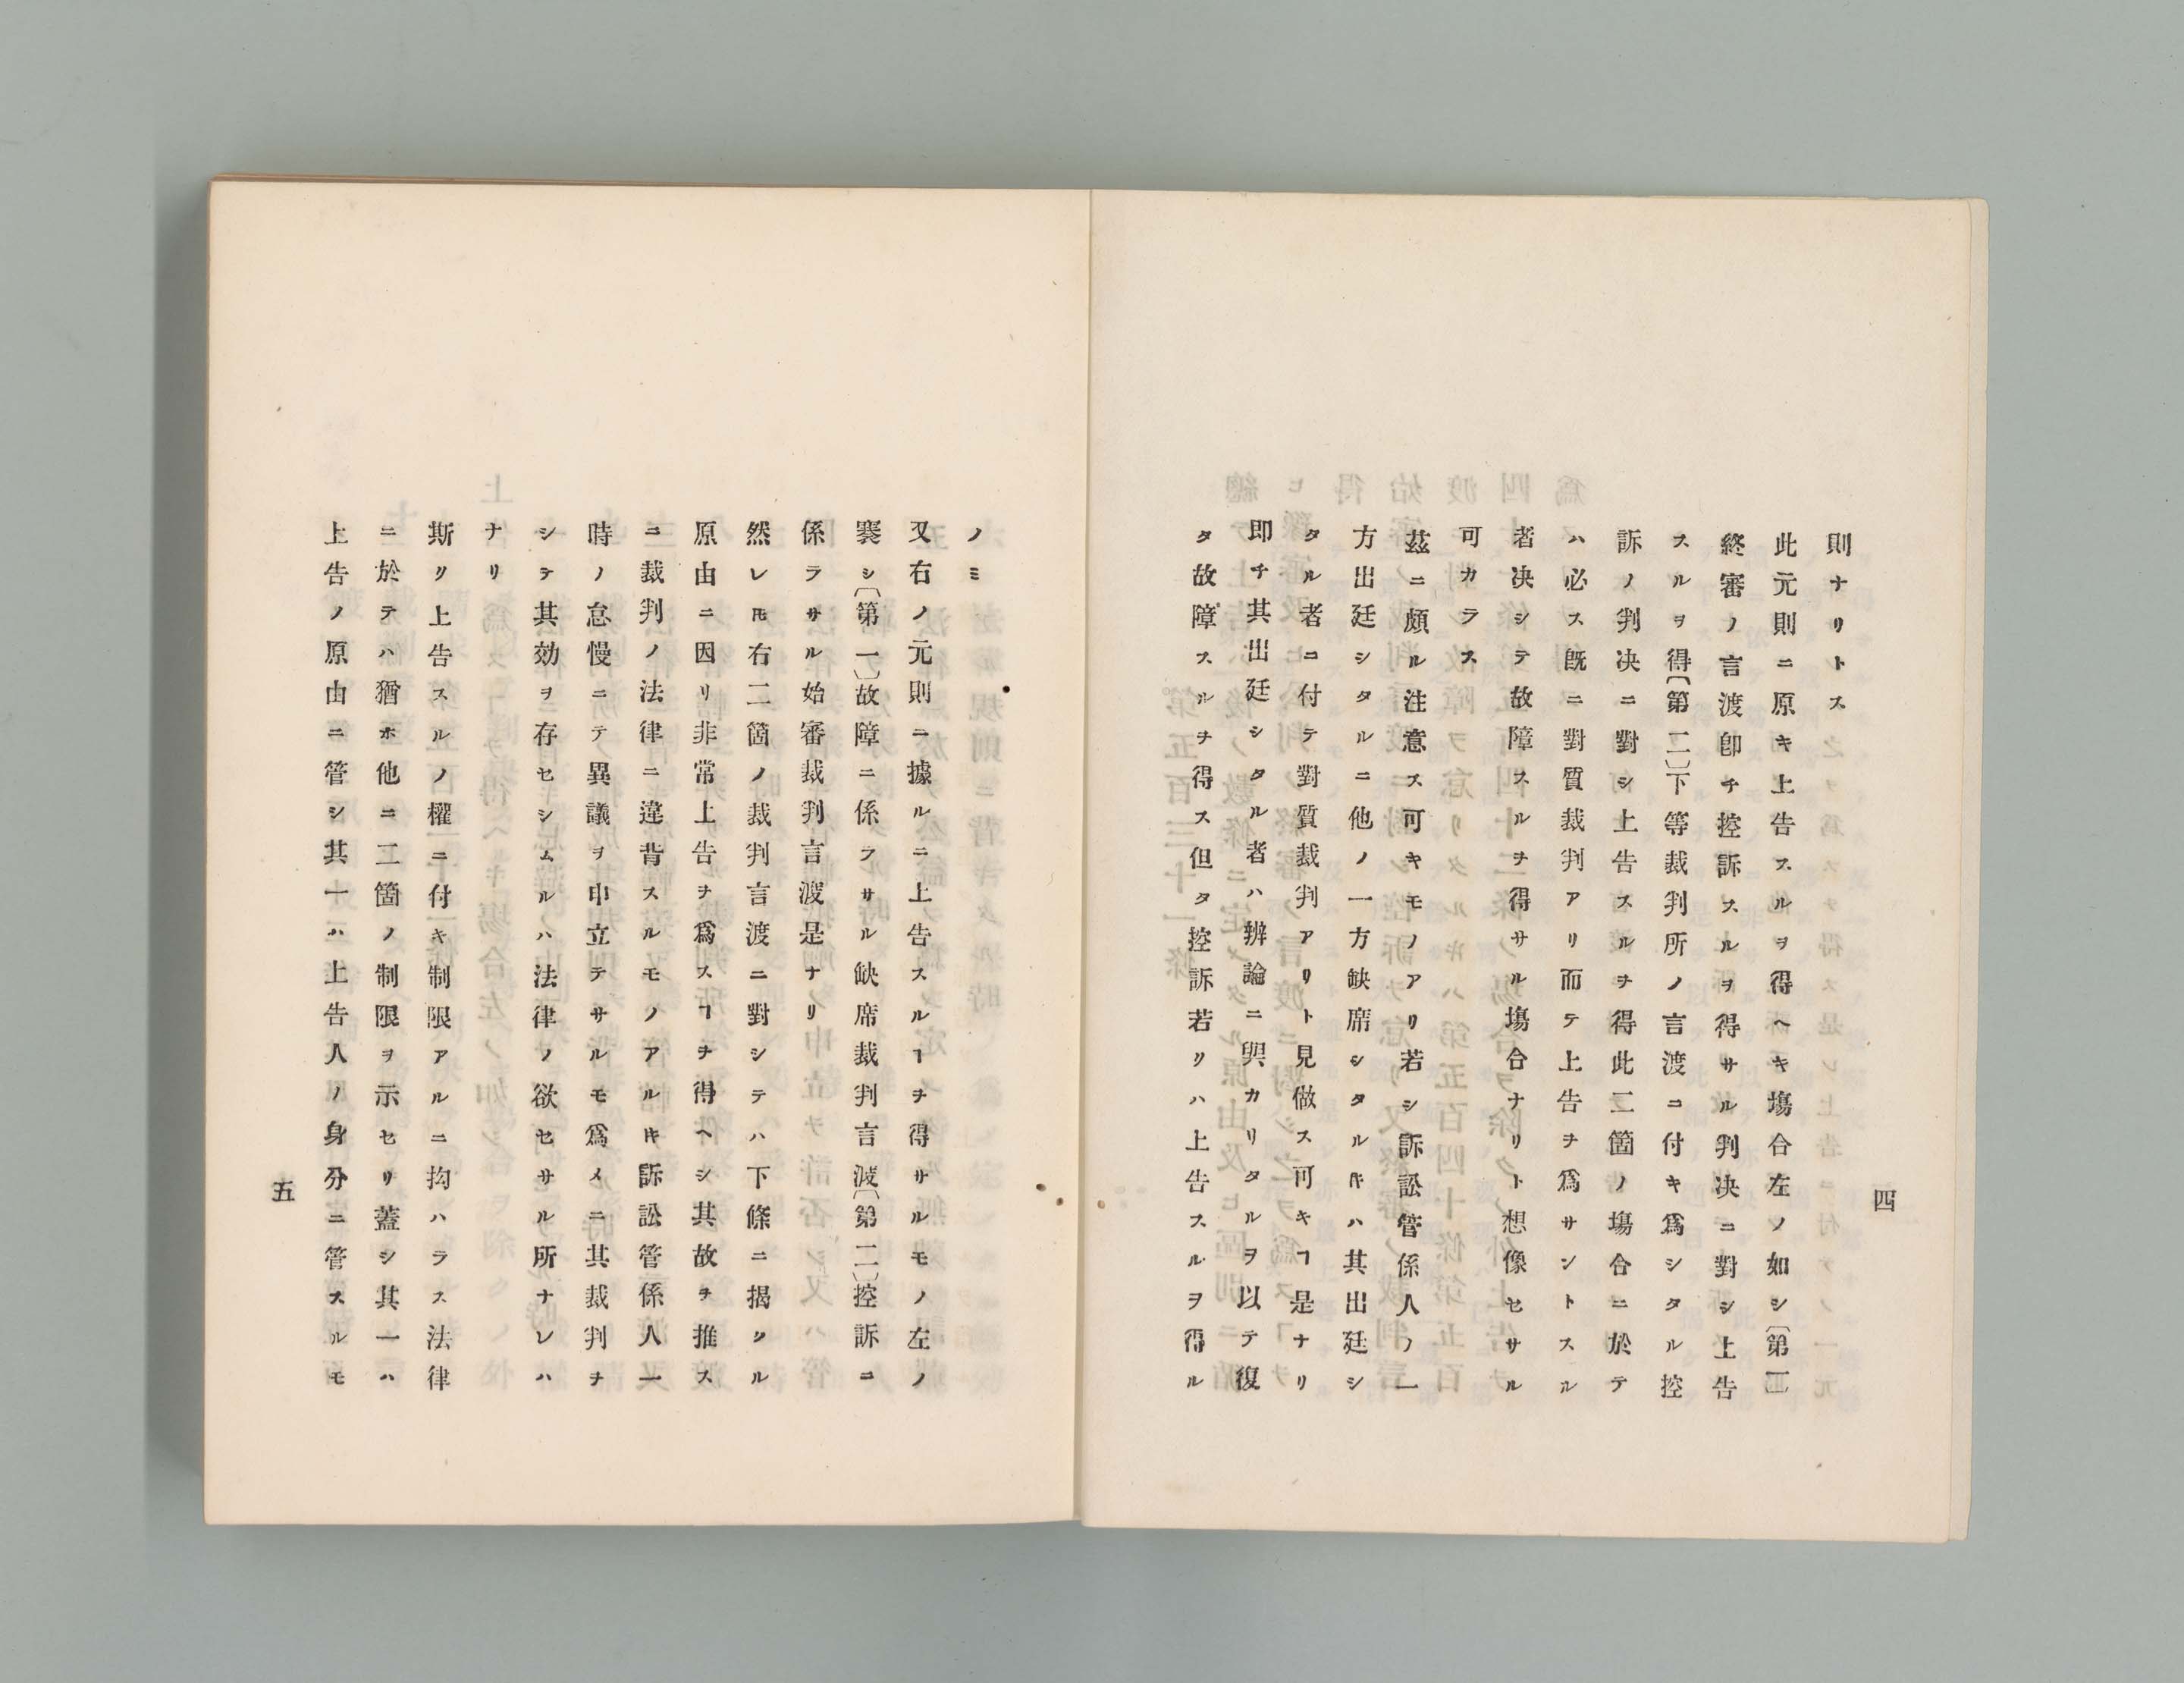 四
則ナリトス
此元則ニ原キ上告スルヲ得ヘキ塲合左ノ如シ〔第一〕
終審ノ言渡卽チ控訴スルヲ得サル判决ニ對シ上告
スルヲ得〔第二〕下等裁判所ノ言渡ニ付キ爲シタル控
訴ノ判决ニ對シ上告スルヲ得此二箇ノ塲合ニ於テ
ハ必ス既ニ對質裁判アリ而テ上告ヲ爲サントスル
者决シテ故障スルヲ得サル塲合ナリト想像セサル
可カラス
茲ニ頗ル注意ス可キモノアリ若シ訴訟管係人ノ一
方出廷シタルニ他ノ一方缺席シタルキハ其出廷シ
タル者ニ付テ對質裁判アリト見做ス可キヿ是ナリ
即チ其出廷シタル者ハ辨論ニ與カリタルヲ以テ復
タ故障スルヲ得ス但タ控訴若クハ上告スルヲ得ル
ノミ
又右ノ元則ニ據ルニ上告スルヿヲ得サルモノ左ノ
褁シ〔第一〕故障ニ係ラサル缺席裁判言渡〔第二〕控訴ニ
係ラサル始審裁判言渡是ナリ
然レ𪜈右二箇ノ裁判言渡ニ對シテハ下條ニ揭クル
原由ニ因リ非常上告ヲ爲スヿヲ得ヘシ其故ヲ推ス
ニ裁判ノ法律ニ違背スルモノアルキ訴訟管係人一
時ノ怠慢ニテ異議ヲ申立テサルモ爲メニ其裁判ヲ
シテ其効ヲ存セシムルハ法律ノ欲セサル所ナレハ
ナリ
斯ク上告スルノ權ニ付キ制限アルニ拘ハラス法律
ニ於テハ猶ホ他ニ二箇ノ制限ヲ示セリ蓋シ其一ハ
上告ノ原由ニ管シ其一ハ上告人ノ身分ニ管スルモ
五